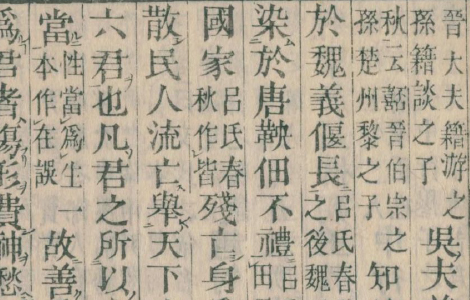 晉大夫籍游之
孫籍談之子
吳夫
秋云嚭晉伯宗之
孫楚州黎之子
知
於魏義偃長
呂氏春
之後魏
染於唐鞅佃不禮
呂
田
國家
呂氏春
秋作皆
殘亡身
散民人流亡舉天下
六君也凡君之所以
當
性當爲生一
本作在誤
故善
爲君者傷形費神愁